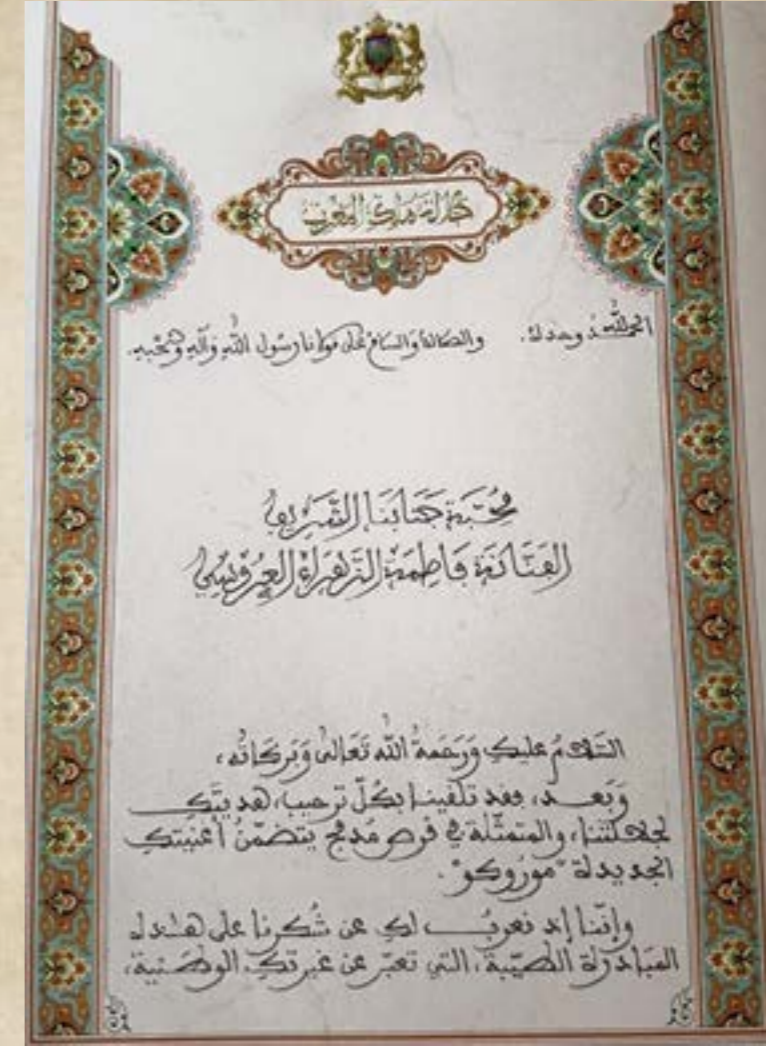 جلالة ملك المغرب
الحمد لله وحده. والصلاة والسلام على مولانا رسول الله وآله وصحبه.
محبة جنابنا الشريف
الفنانة فاطمة الزهراء العروسي
السلام عليك ورحمة الله تعالى وبركاته،
وبعـــد، فقد تلقينا بكل ترحيب، هديتك
لجلالتنا، والمتمثلة في قرص مدمج يتضمن أغنيتك
الجديدة "موروكو".
وإننا إذ نعرب لك عن شكرنا على هذه
المبادرة الطيبة، التي تعبر عن غيرتك الوطنية،